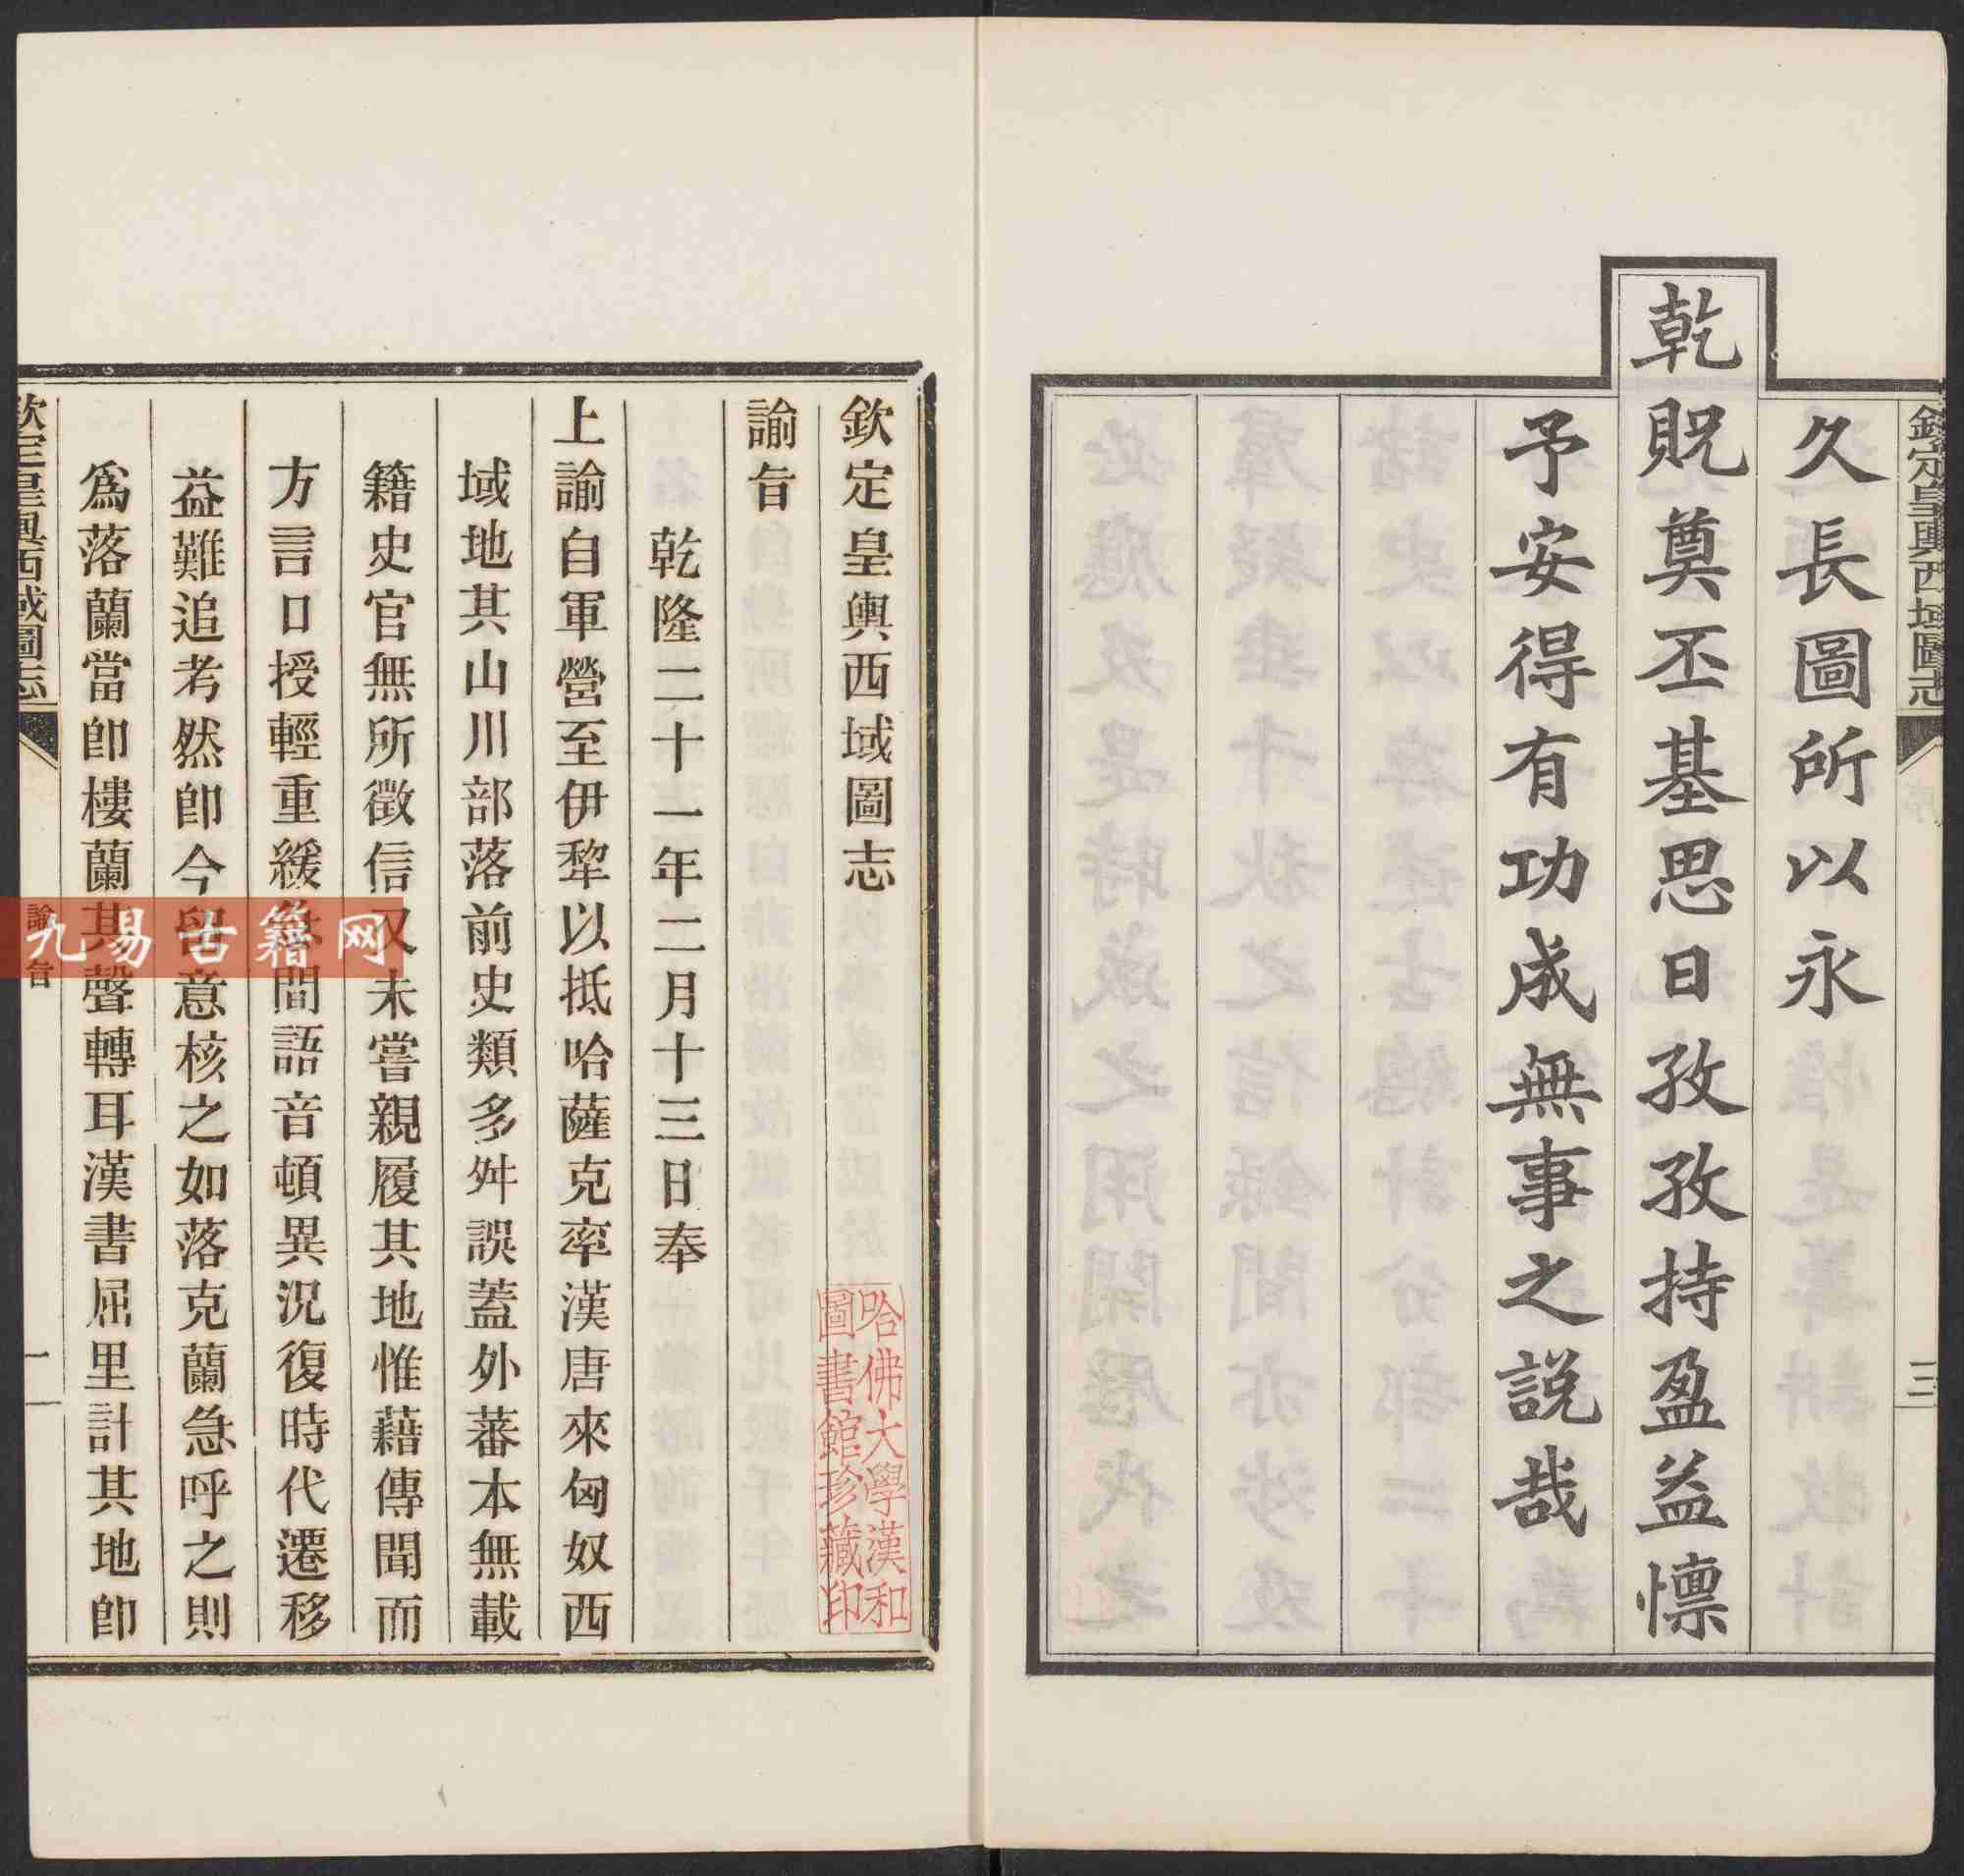 欽定皇輿西域圖志
三
久長圖所以永
乾貺奠丕基思日孜孜持盈益懍
予安得有功成無事之説哉
欽定皇輿西域圖志
諭旨
乾隆二十一年二月十三日奉
上諭自軍營至伊犂以抵哈薩克率漢唐來匈奴西
域地其山川部落前史類多舛誤蓋外蕃本無載
籍史官無所徵信又未嘗親履其地惟藉傳聞而
方言口授輕重緩急間語音頓異況復時代遷移
益難追考然卽今留意核之如落克蘭急呼之則
爲落蘭當卽樓蘭其聲轉耳漢書屈里計其地卽
欽定皇輿西域圖志
諭旨
一
哈佛大學漢和
圖書館珍藏印
九易古籍网